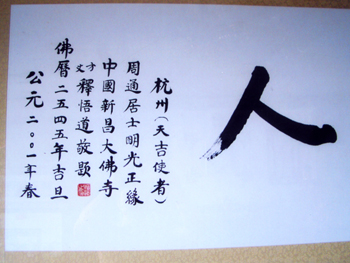 人
杭州（天吉使者）
周通居士明光正緣
中國新昌大佛寺
方丈釋悟道敬題
佛曆二五四五年吉旦
公元二〇〇一年春